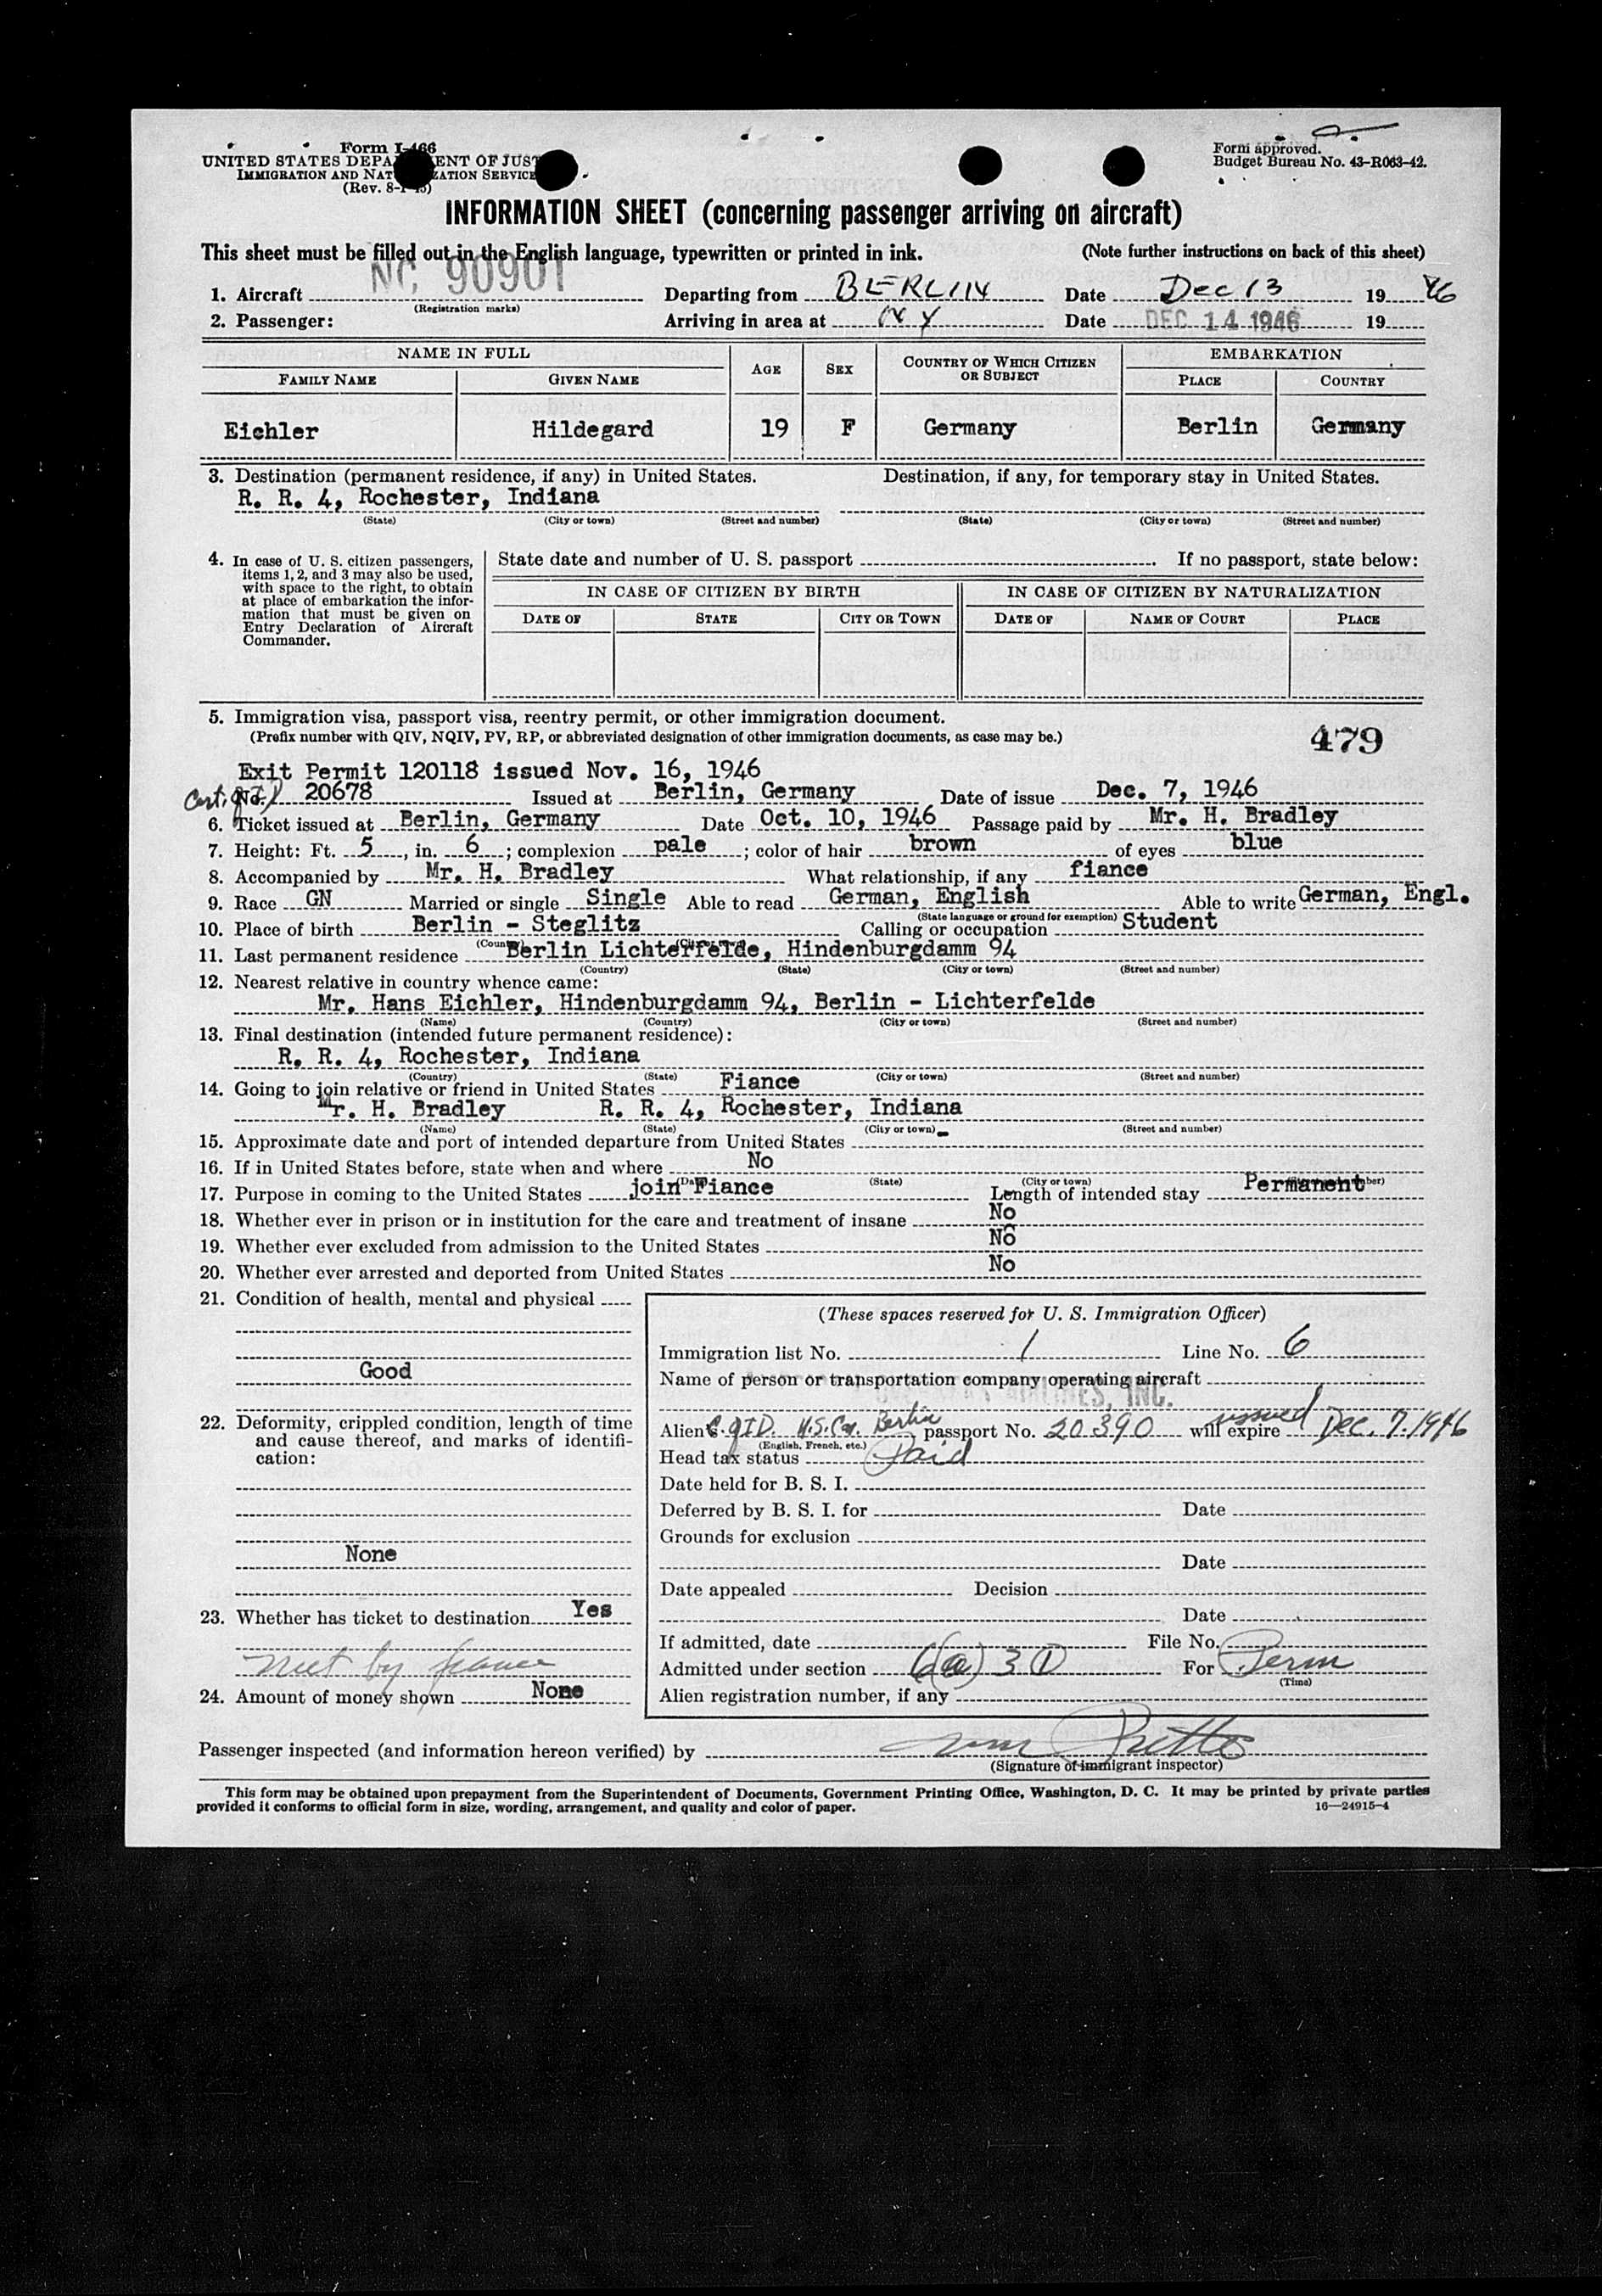 Form I-466
UNITED STATES DEPA ENT OF JUST
IMMIGRATION AND NAT ZATION SERVICE
(Rev. 8-1-45)
Form approved.
Budget Bureau No. 43-R063-42.
INFORMATION SHEET (concerning passenger arriving on aircraft)
This sheet must be filled out in the English language, typewritten or printed in ink. (Note further instructions on back of this sheet)
1. Aircraft NC 90901 Departing from BERLIN Date Dec 13 1946
(Registration marks)
2. Passenger: Arriving in area at NY Date DEC 14 1946 19
NAME IN FULL AGE SEX COUNTRY OF WHICH CITIZEN OR SUBJECT EMBARKATION
FAMILY NAME GIVEN NAME PLACE COUNTRY
Eichler Hildegard 19 F Germany Berlin Germany
3. Destination (permanent residence, if any) in United States. Destination, if any, for temporary stay in United States.
R. R. 4, Rochester, Indiana
(State) (City or town) (Street and number) (State) (City or town) (Street and number)
4. In case of U. S. citizen passengers, items 1, 2, and 3 may also be used, with space to the right, to obtain at place of embarkation the information that must be given on Entry Declaration of Aircraft Commander.
State date and number of U. S. passport If no passport, state below:
IN CASE OF CITIZEN BY BIRTH IN CASE OF CITIZEN BY NATURALIZATION
DATE OF STATE CITY OR TOWN DATE OF NAME OF COURT PLACE
5. Immigration visa, passport visa, reentry permit, or other immigration document.
(Prefix number with QIV, NQIV, PV, RP, or abbreviated designation of other immigration documents, as case may be.) 479
Exit Permit 120118 issued Nov. 16, 1946
Cert. of I.D. No. 20678 Issued at Berlin, Germany Date of issue Dec. 7, 1946
6. Ticket issued at Berlin, Germany Date Oct. 10, 1946 Passage paid by Mr. H. Bradley
7. Height: Ft. 5, in. 6; complexion pale; color of hair brown of eyes blue
8. Accompanied by Mr. H. Bradley What relationship, if any fiance
9. Race GN Married or single Single Able to read German, English Able to write German, Engl.
(State language or ground for exemption)
10. Place of birth Berlin - Steglitz Calling or occupation Student
11. Last permanent residence Berlin Lichterfelde, Hindenburgdamm 94
(Country) (State) (City or town) (Street and number)
12. Nearest relative in country whence came:
Mr. Hans Eichler, Hindenburgdamm 94, Berlin - Lichterfelde
(Name) (Country) (City or town) (Street and number)
13. Final destination (intended future permanent residence):
R. R. 4, Rochester, Indiana
(Country) (State) (City or town) (Street and number)
14. Going to join relative or friend in United States Fiance
Mr. H. Bradley R. R. 4, Rochester, Indiana
(Name) (State) (City or town) (Street and number)
15. Approximate date and port of intended departure from United States -
16. If in United States before, state when and where No
(State) (City or town)
17. Purpose in coming to the United States join Fiance Length of intended stay Permanent
18. Whether ever in prison or in institution for the care and treatment of insane No
19. Whether ever excluded from admission to the United States No
20. Whether ever arrested and deported from United States No
21. Condition of health, mental and physical
Good
22. Deformity, crippled condition, length of time and cause thereof, and marks of identification:
None
23. Whether has ticket to destination Yes
met by fiance
24. Amount of money shown None
(These spaces reserved for U. S. Immigration Officer)
Immigration list No. 1 Line No. 6
Name of person or transportation company operating aircraft
AIRLINES, INC.
Alien C. of I.D. U.S. Con. Berlin passport No. 20390 will expire issued Dec. 7. 1946
(English, French, etc.)
Head tax status Paid
Date held for B. S. I.
Deferred by B. S. I. for Date
Grounds for exclusion
Date
Date appealed Decision
Date
If admitted, date File No.
Admitted under section 6(a) 3 D For Perm
(Time)
Alien registration number, if any
Passenger inspected (and information hereon verified) by
(Signature of immigrant inspector)
This form may be obtained upon prepayment from the Superintendent of Documents, Government Printing Office, Washington, D. C. It may be printed by private parties
provided it conforms to official form in size, wording, arrangement, and quality and color of paper. 16—24915-4